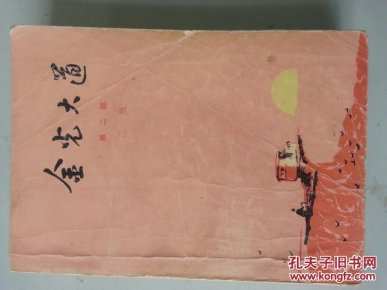 金光大道
第二部
孔夫子旧书网
www.kongfz.com